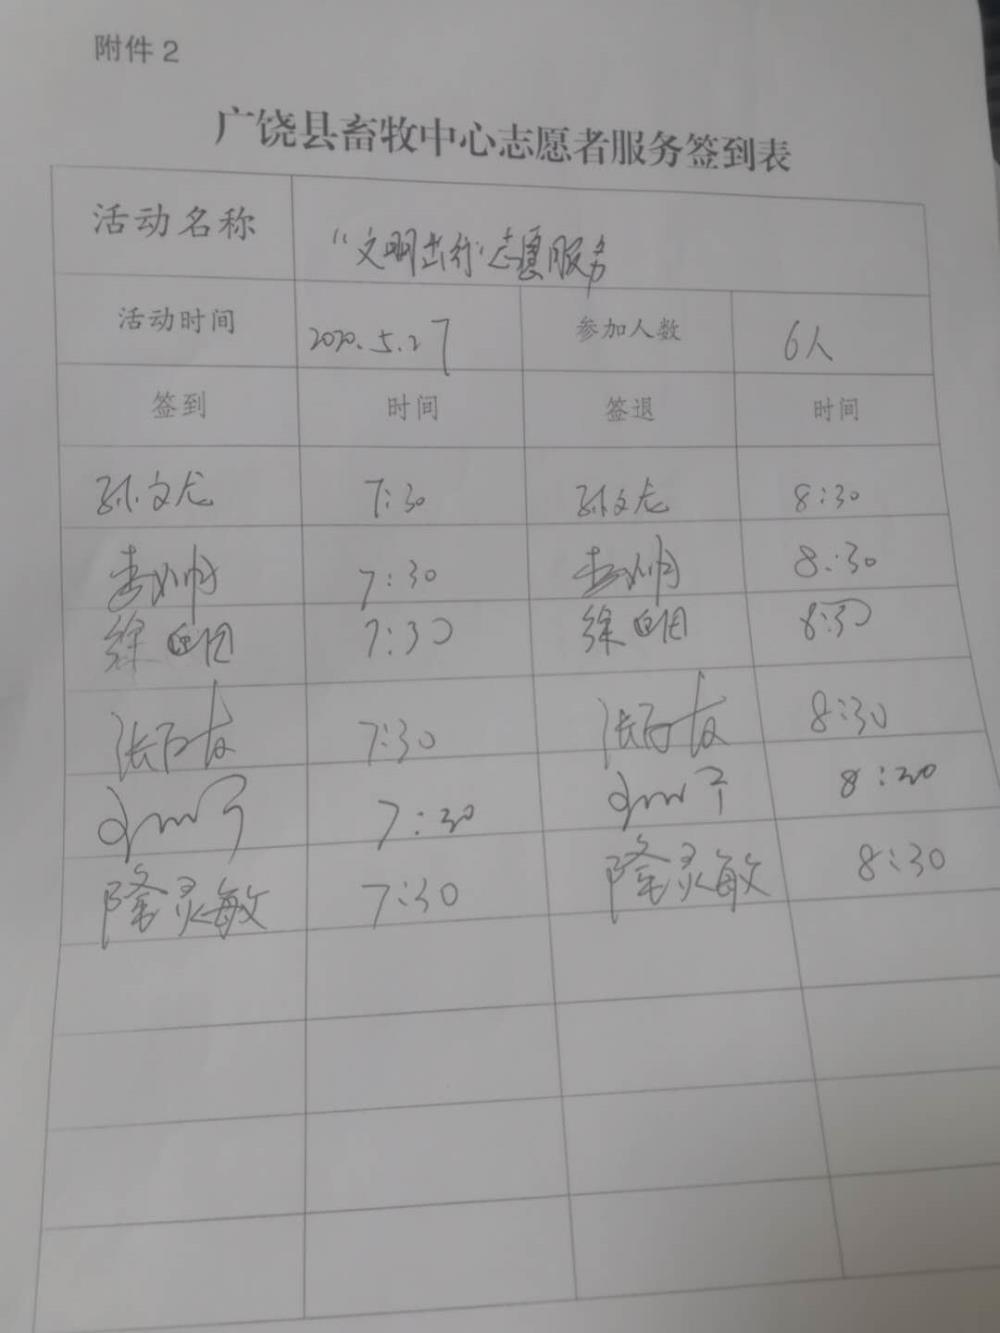 附件 2
广饶县畜牧中心志愿者服务签到表
活动名称 “文明出行”志愿服务
活动时间 2020.5.27 参加人数 6人
签到 时间 签退 时间
孙文龙 7:30 孙文龙 8:30
7:30 8:30
徐 7:30 徐 8:30
张 友 7:30 张 友 8:30
7:30 8:30
隆灵敏 7:30 隆灵敏 8:30